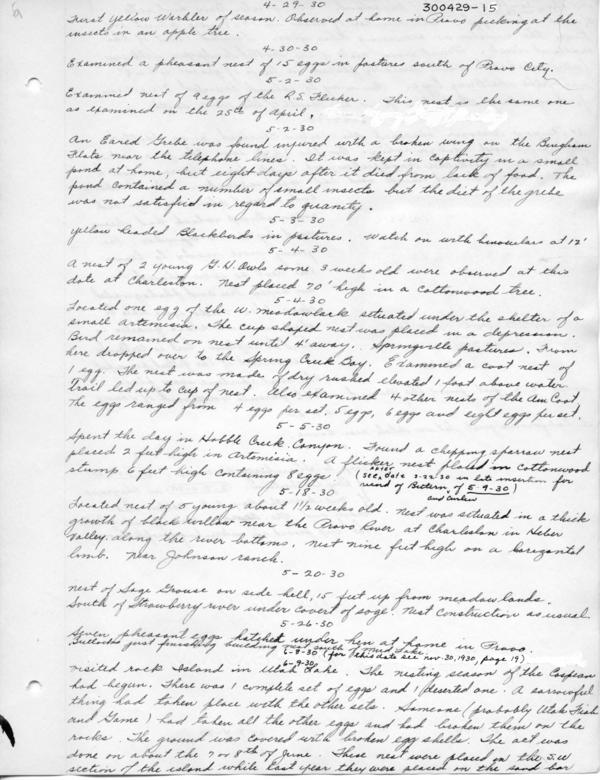 4-29-30
300429-15
First Yellow Warbler of season. Observed at home in Provo picking at the
insects in an apple tree.
4-30-30
Examined a pheasant nest of 15 eggs in pastures south of Provo City.
5-2-30
Examined nest of 9 eggs of the R.S. Flicker. This nest is the same one
as examined on the 25th of April.
5-2-30
An Eared Grebe was found injured with a broken wing on the Bingham
Flats near the telephone lines. It was kept in captivity in a small
pond at home, but eight days after it died from lack of food. The
pond contained a number of small insects but the diet of the grebe
was not satisfied in regard to quanity.
5-3-30
Yellow headed Blackbirds in pastures. Watch on with binoculars at 12'
5-4-30
A nest of 2 young G.H. Owls some 3 weeks old were observed at this
date at Charleston. Nest placed 70' high in a cottonwood tree.
5-4-30
Located one egg of the W. meadowlark situated under the shelter of a
small artemisia. The cup shaped nest was placed in a depression.
Bird remained on nest until 4' away. Springville pastures. From
here dropped over to the Spring Creek Bay. Examined a coot nest of
1 egg. The nest was made of dry rushed elevated 1 foot above water.
Trail led up to cup of nest. Also examined 4 other nests of the Am Coot
The eggs ranged from 4 eggs per set, 5 eggs, 6 eggs and eight eggs per set.
5-5-30
Spent the day in Hobble Creek Canyon. Found a chipping sparrow nest
placed 2 feet high in Artemisia. A flicker nest placed in cottonwood
stump 6 feet high containing 8 eggs. (See date 2-22-30 in late insertion for
record of Bittern, of 5-9-30)
and Curlew
5-18-30
Located nest of 5 young about 1 1/2 weeks old. Nest was situated in a thick
growth of black willow near the Provo River at Charleston in Heber
Valley along the river bottoms. Nest nine feet high on a horozontal
limb. Near Johnson ranch.
5-20-30
Nest of Sage Grouse on side hill, 15 feet up from meadow lands.
South of Strawberry river under covert of sage. Nest construction as usual.
5-26-30
Seven pheasant eggs hatched under hen at home in Provo.
Bullocks just finishing building nest south of Utah Lake.
6-8-30 (for this date see nov-30, 1930, page 19)
6-9-30
Visited rock Island in Utah Lake. The nesting season of the Caspean
had begun. There was 1 complete set of eggs and 1 deserted one. A sorrowful
thing had taken place with the other sets. Someone (probably Utah Fish
and Game) had taken all the other eggs and had broken them on the
rocks. The ground was covered with broken egg shells. The act was
done on about the 7 or 8th of June. These nest were placed on the S.W
section of the island while last year they were placed on the sand bar